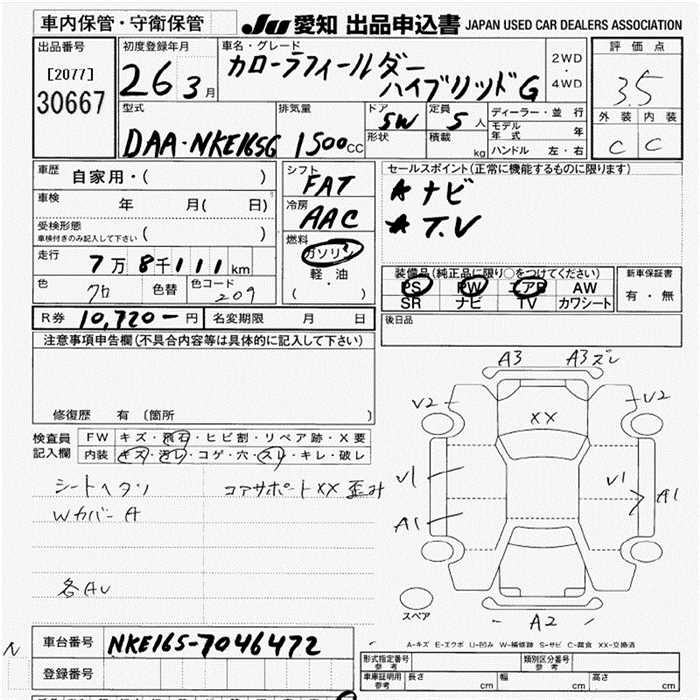 車内保管・守衛保管
JU 愛知 出品申込書 JAPAN USED CAR DEALERS ASSOCIATION
出品番号
[2077]
30667
初度登録年月
26 3月
車名・グレード
カローラフィールダー
ハイブリッドG
2WD
・
4WD
評価点
3.5
外装 内装
C C
型式
DAA-NKE165G
排気量
1500cc
ドア
5W
形状
定員
5人
積載
kg
ディーラー・並行
モデル年式 年
ハンドル 左・右
車歴
自家用・( )
車検
年 月( 日)
受検形態
車検付きのみ記入して下さい ( )
走行
7万8千111km
色
クロ
色替
色コード
209
シフト
FAT
冷房
AAC
燃料
ガソリン
軽・油
( )
セールスポイント(正常に機能するものに限ります)
★ナビ
★T.V
装備品(純正品に限り○をつけてください)
PS PW エアB AW
SR ナビ TV カワシート
新車保証書
有・無
後日品
R券 10,720-円
名変期限 月 日
注意事項申告欄(不具合内容等は具体的に記入して下さい)
修復歴 有〔箇所 〕
検査員記入欄
FW キズ・飛石・ヒビ割・リペア跡・X要
内装 キズ・汚レ・コゲ・穴・スレ・キレ・破レ
シートヘタリ
Wカバー A
コアサポートXX 歪み
各AU
A3 A3ズレ
V2 V2
XX
V1 V1 A1
A1
A2
スペア
車台番号 NKE165-7046472
登録番号
N
A-キズ E-エクボ U-凹み W-補修跡 S-サビ C-腐食 XX-交換済
形式指定番号
参考
類別区分番号
参考
車庫証明用
参考
長さ cm 幅 cm 高さ cm